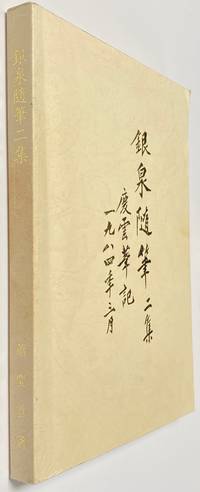 銀泉隨筆二集
銀泉隨筆 二集
雲 記
一九八四年三月